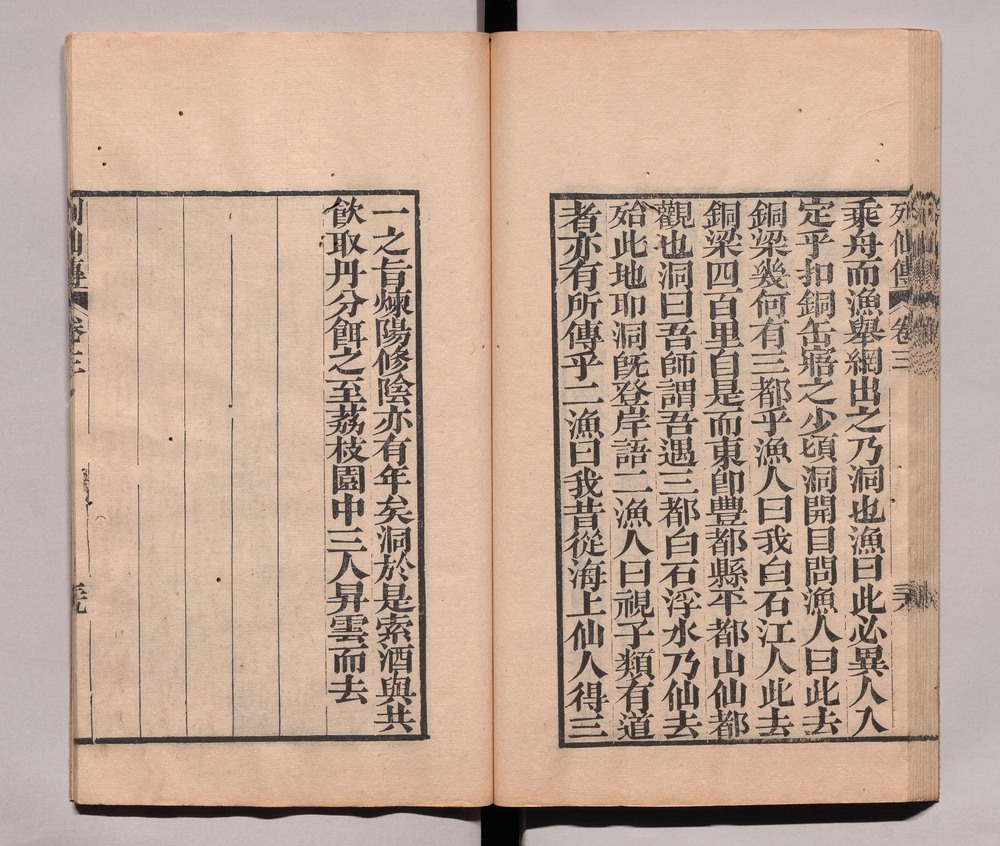 列仙傳 卷三
乘舟而漁舉網出之乃洞也漁曰此必異人入
定乎扣銅缶寤之少頃洞開目問漁人曰此去
銅梁幾何有三都乎漁人曰我白石江人此去
銅梁四百里自是而東卽豐都縣平都山仙都
觀也洞曰吾師謂吾遇三都白石浮水乃仙去
殆此地耶洞旣登岸語二漁人曰視子類有道
者亦有所傳乎二漁曰我昔從海上仙人得三
一之旨煉陽修陰亦有年矣洞於是索酒與共
飲取丹分餌之至荔枝園中三人昇雲而去
列仙傳 卷三